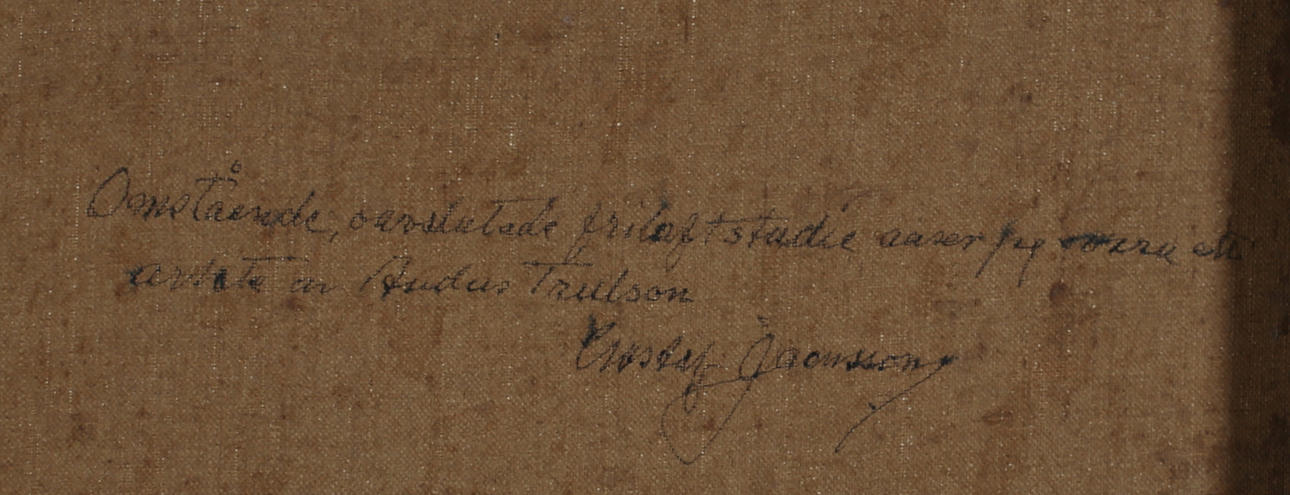 Omstående, oavslutade friluftstudie anser jag vara ett
arbete av Anders Trulson
Gustaf